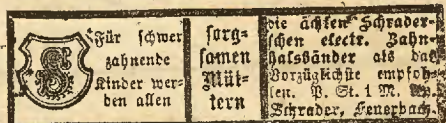 S
Für schwer
zahnende
Kinder wer-
den allen
sorg-
samen
Müt-
tern
die ächten Schrader-
schen electr. Zahn-
halsbänder als das
Vorzüglichste empfoh-
len. P. St. 1 M.
Schrader, Feuerbach.